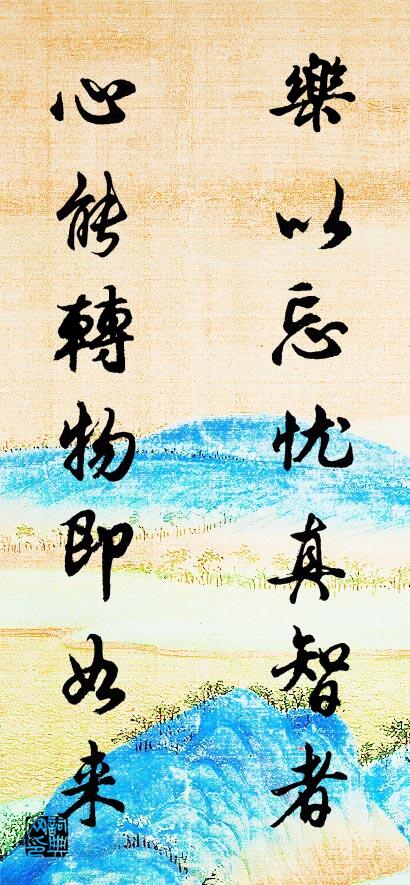 樂以忘忧真智者
心能轉物即如来